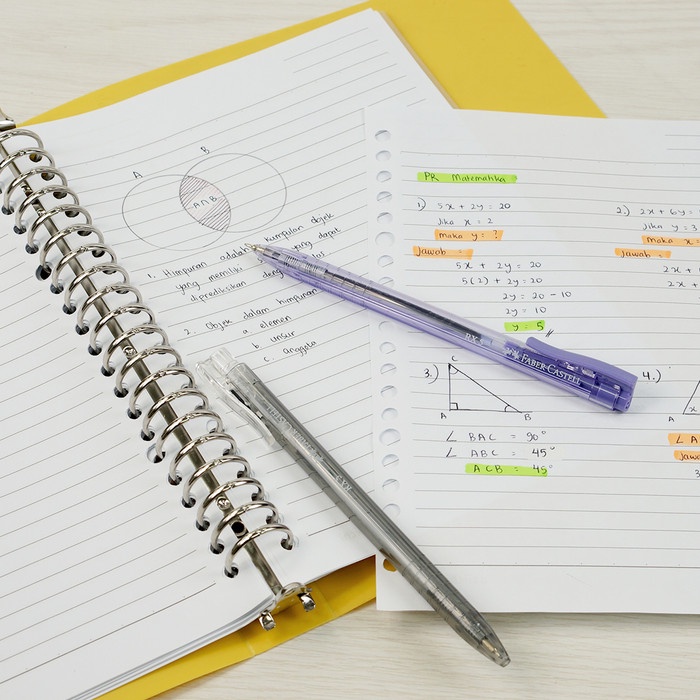 A
B
A∩B
1. Himpunan adalah kumpulan objek
yang memiliki dapat
diprediksikan
2. Objek dalam himpunan
a elemen
b. unsur
c. anggota
PR Matematika
1) 5x + 2y = 20
Jika x = 2
maka y = ?
Jawab =
5x + 2y = 20
5(2) + 2y = 20
2y = 20 - 10
2y = 10
y = 5
2.) 2x + 6y
Jika y = 3
maka x =
Jawab =
2x +
2x +
3.)
C
A
B
∠ BAC = 90°
∠ ABC = 45°
ACB = 45°
4.)
A
x
∠ A
Jawa
3
FABER-CASTELL